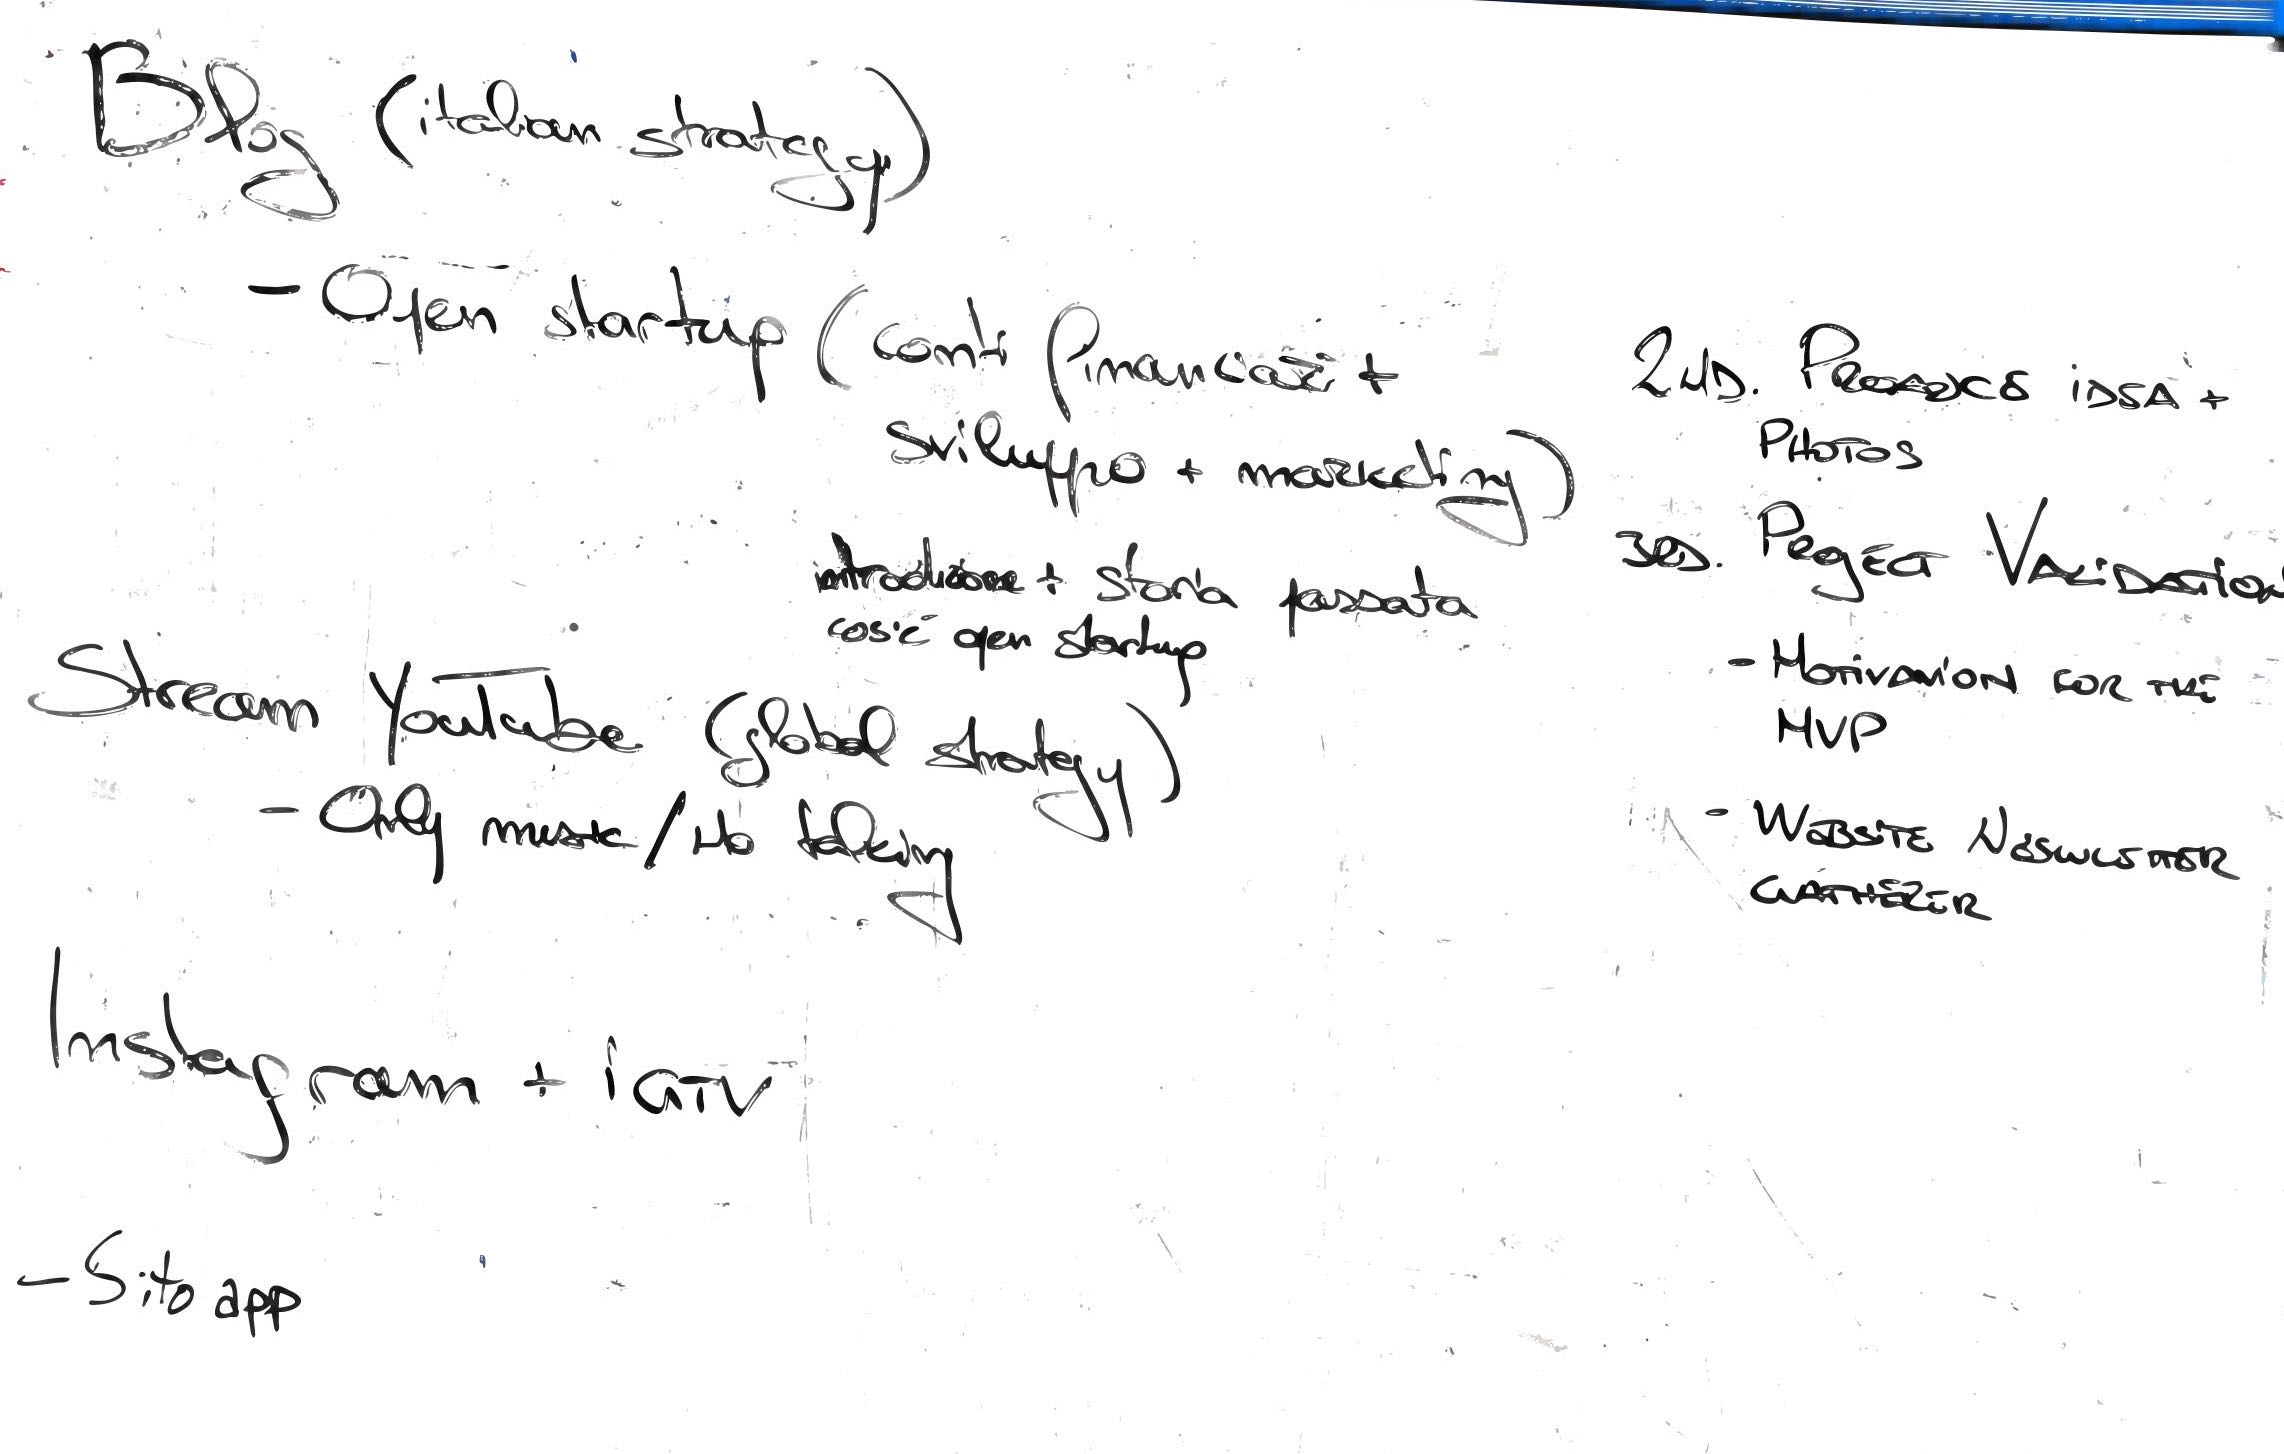 Blog (italian strategy)
- Open startup (conti financiari +
sviluppo + marketing)
introduzione + storia passata
cos'è open startup
Stream YouTube (global strategy)
- Only music / No talking
Instagram + iGTV
- Sito app
2ND. PRODUCE IDEA +
PHOTOS
3RD. PROJECT VALIDATION
- MOTIVATION FOR THE
MVP
- WEBSITE NEWSLETTER
GATHERER